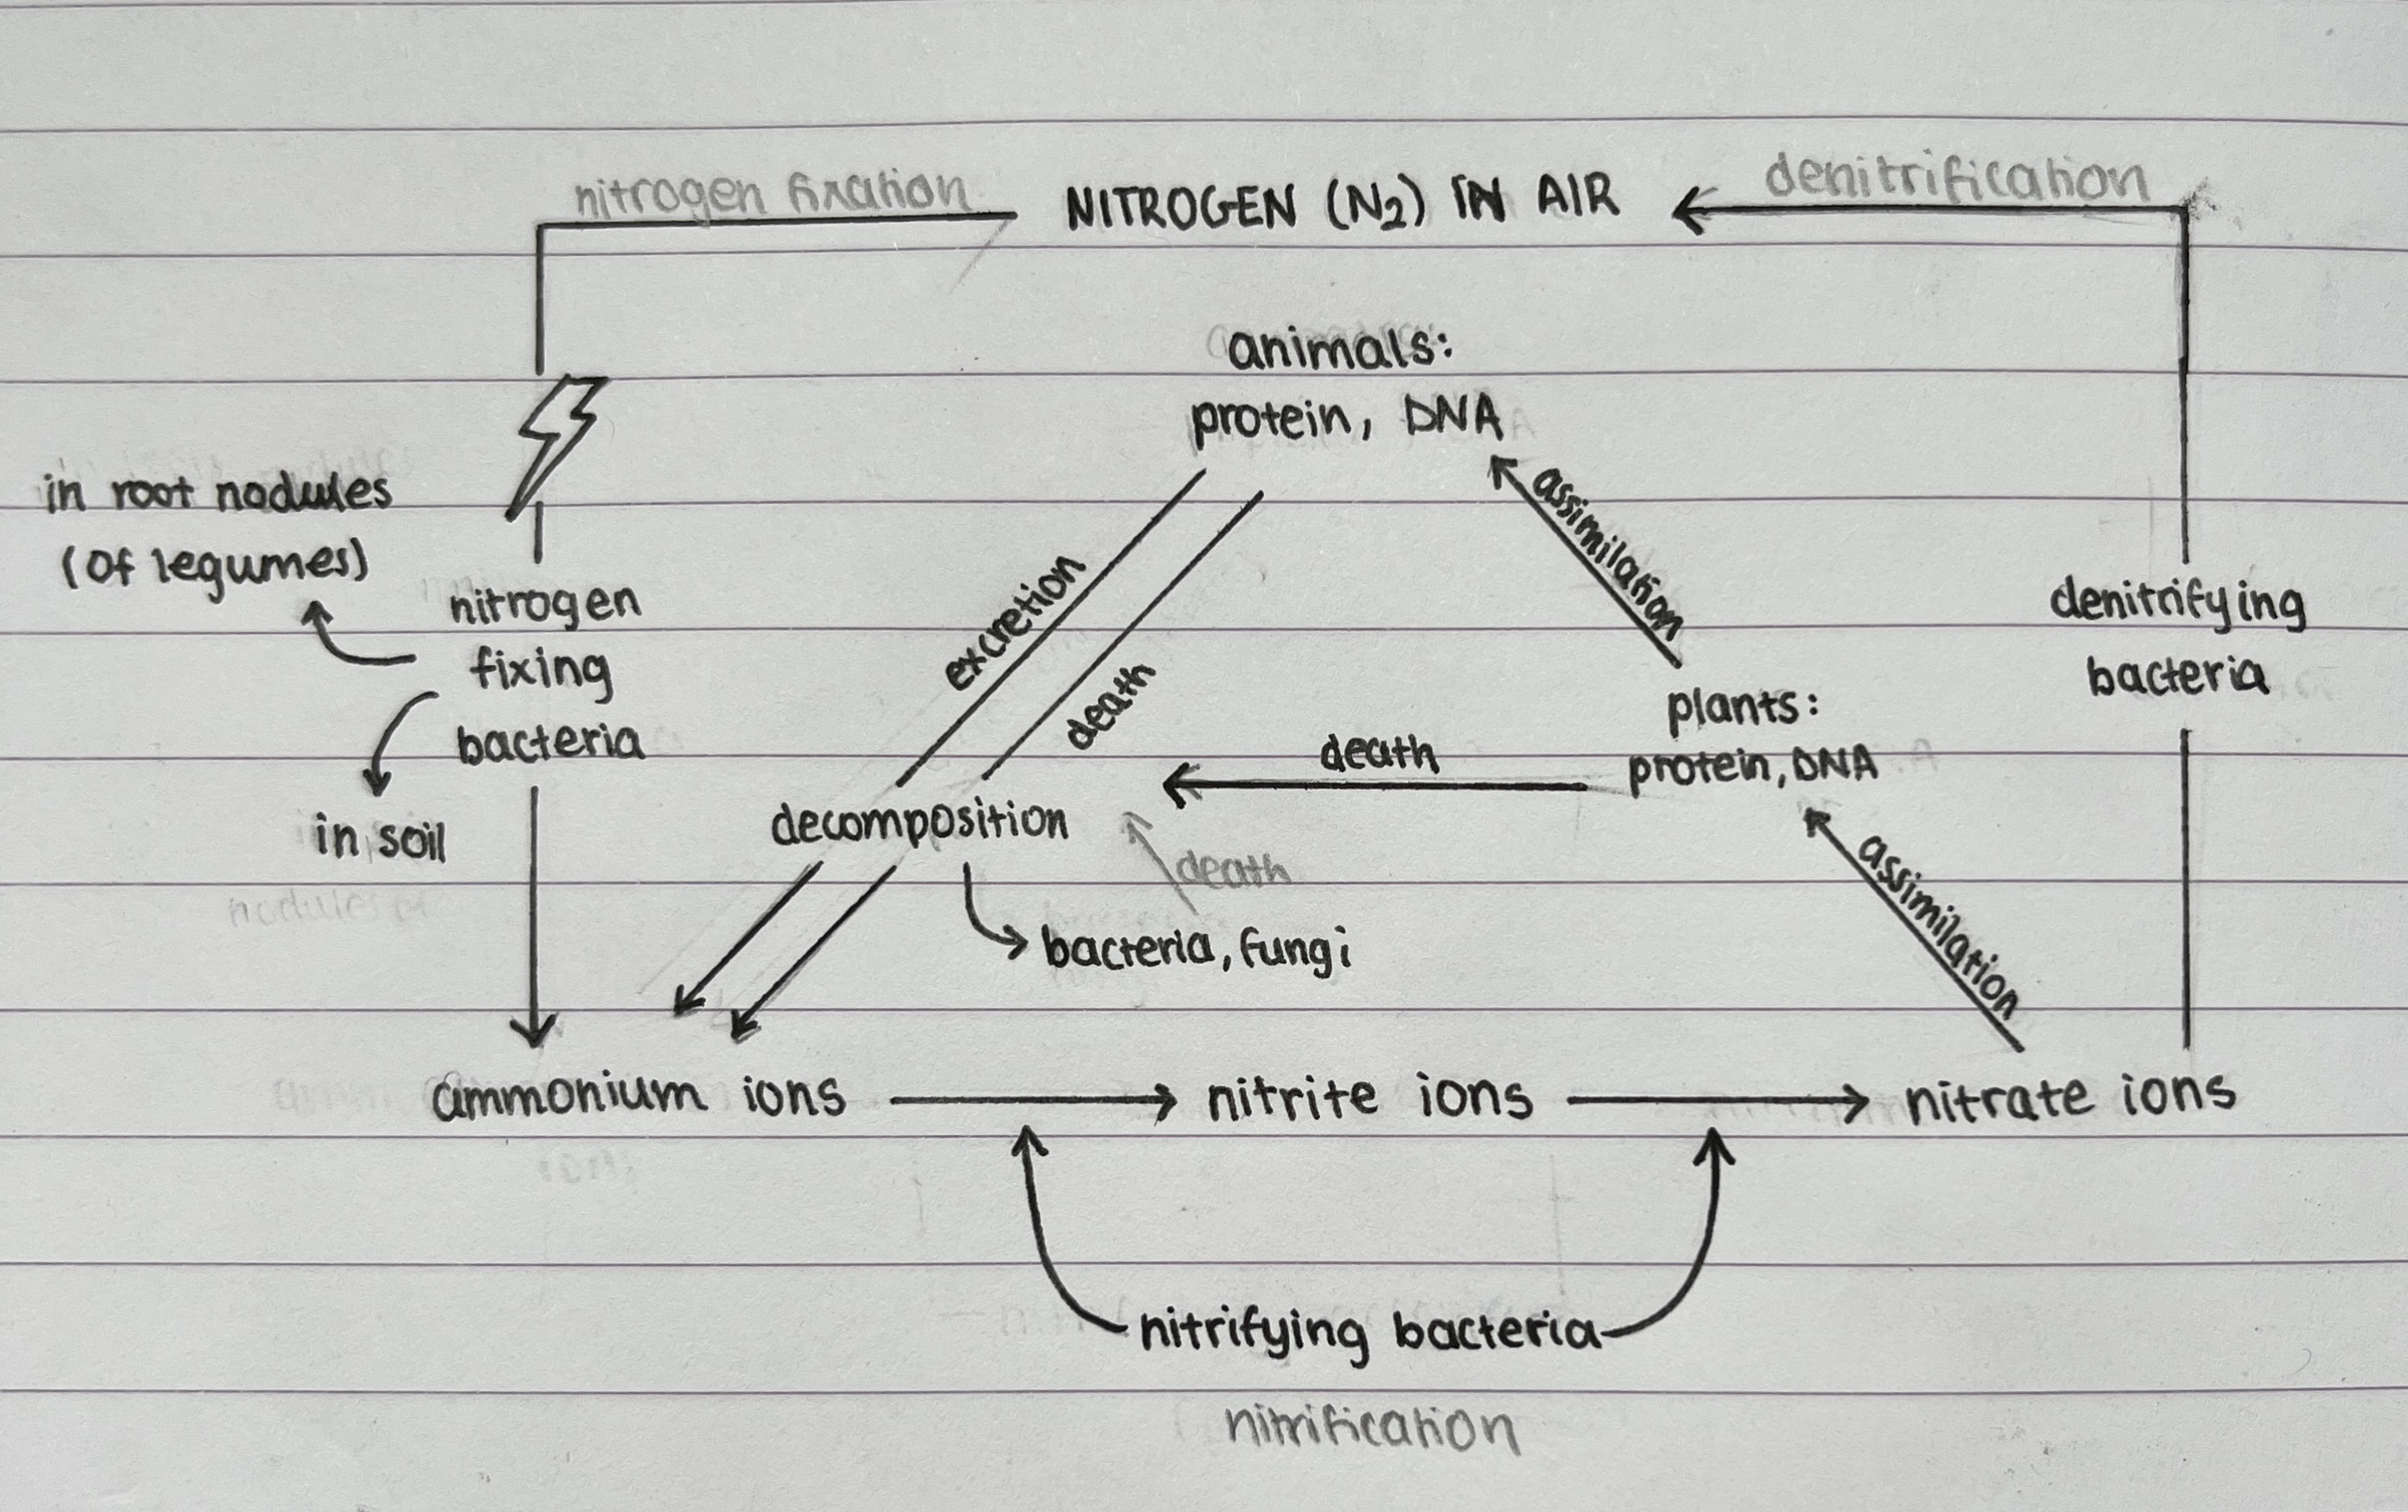 nitrogen fixation
NITROGEN (N2) IN AIR
denitrification
animals:
protein, DNA
in root nodules
(of legumes)
nitrogen
fixing
bacteria
in soil
excretion
death
assimilation
denitrifying
bacteria
plants:
protein, DNA
death
decomposition
death
bacteria, fungi
assimilation
ammonium ions
nitrite ions
nitrate ions
nitrifying bacteria
nitrification